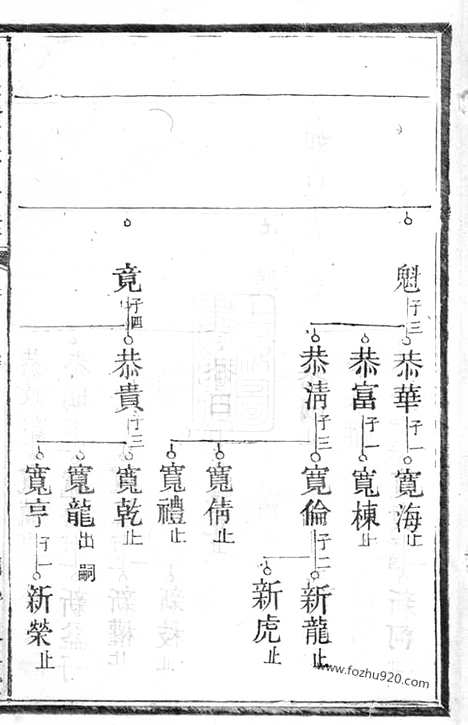 魁子三
恭華子一
寬海止
恭富子一
寬棟止
恭清子三
寬倫子二
新龍止
新虎止
寬倩止
寬禮止
竟子四
恭貴子三
寬乾止
寬龍出嗣
寬亨子一
新榮止
www.fozhu920.com